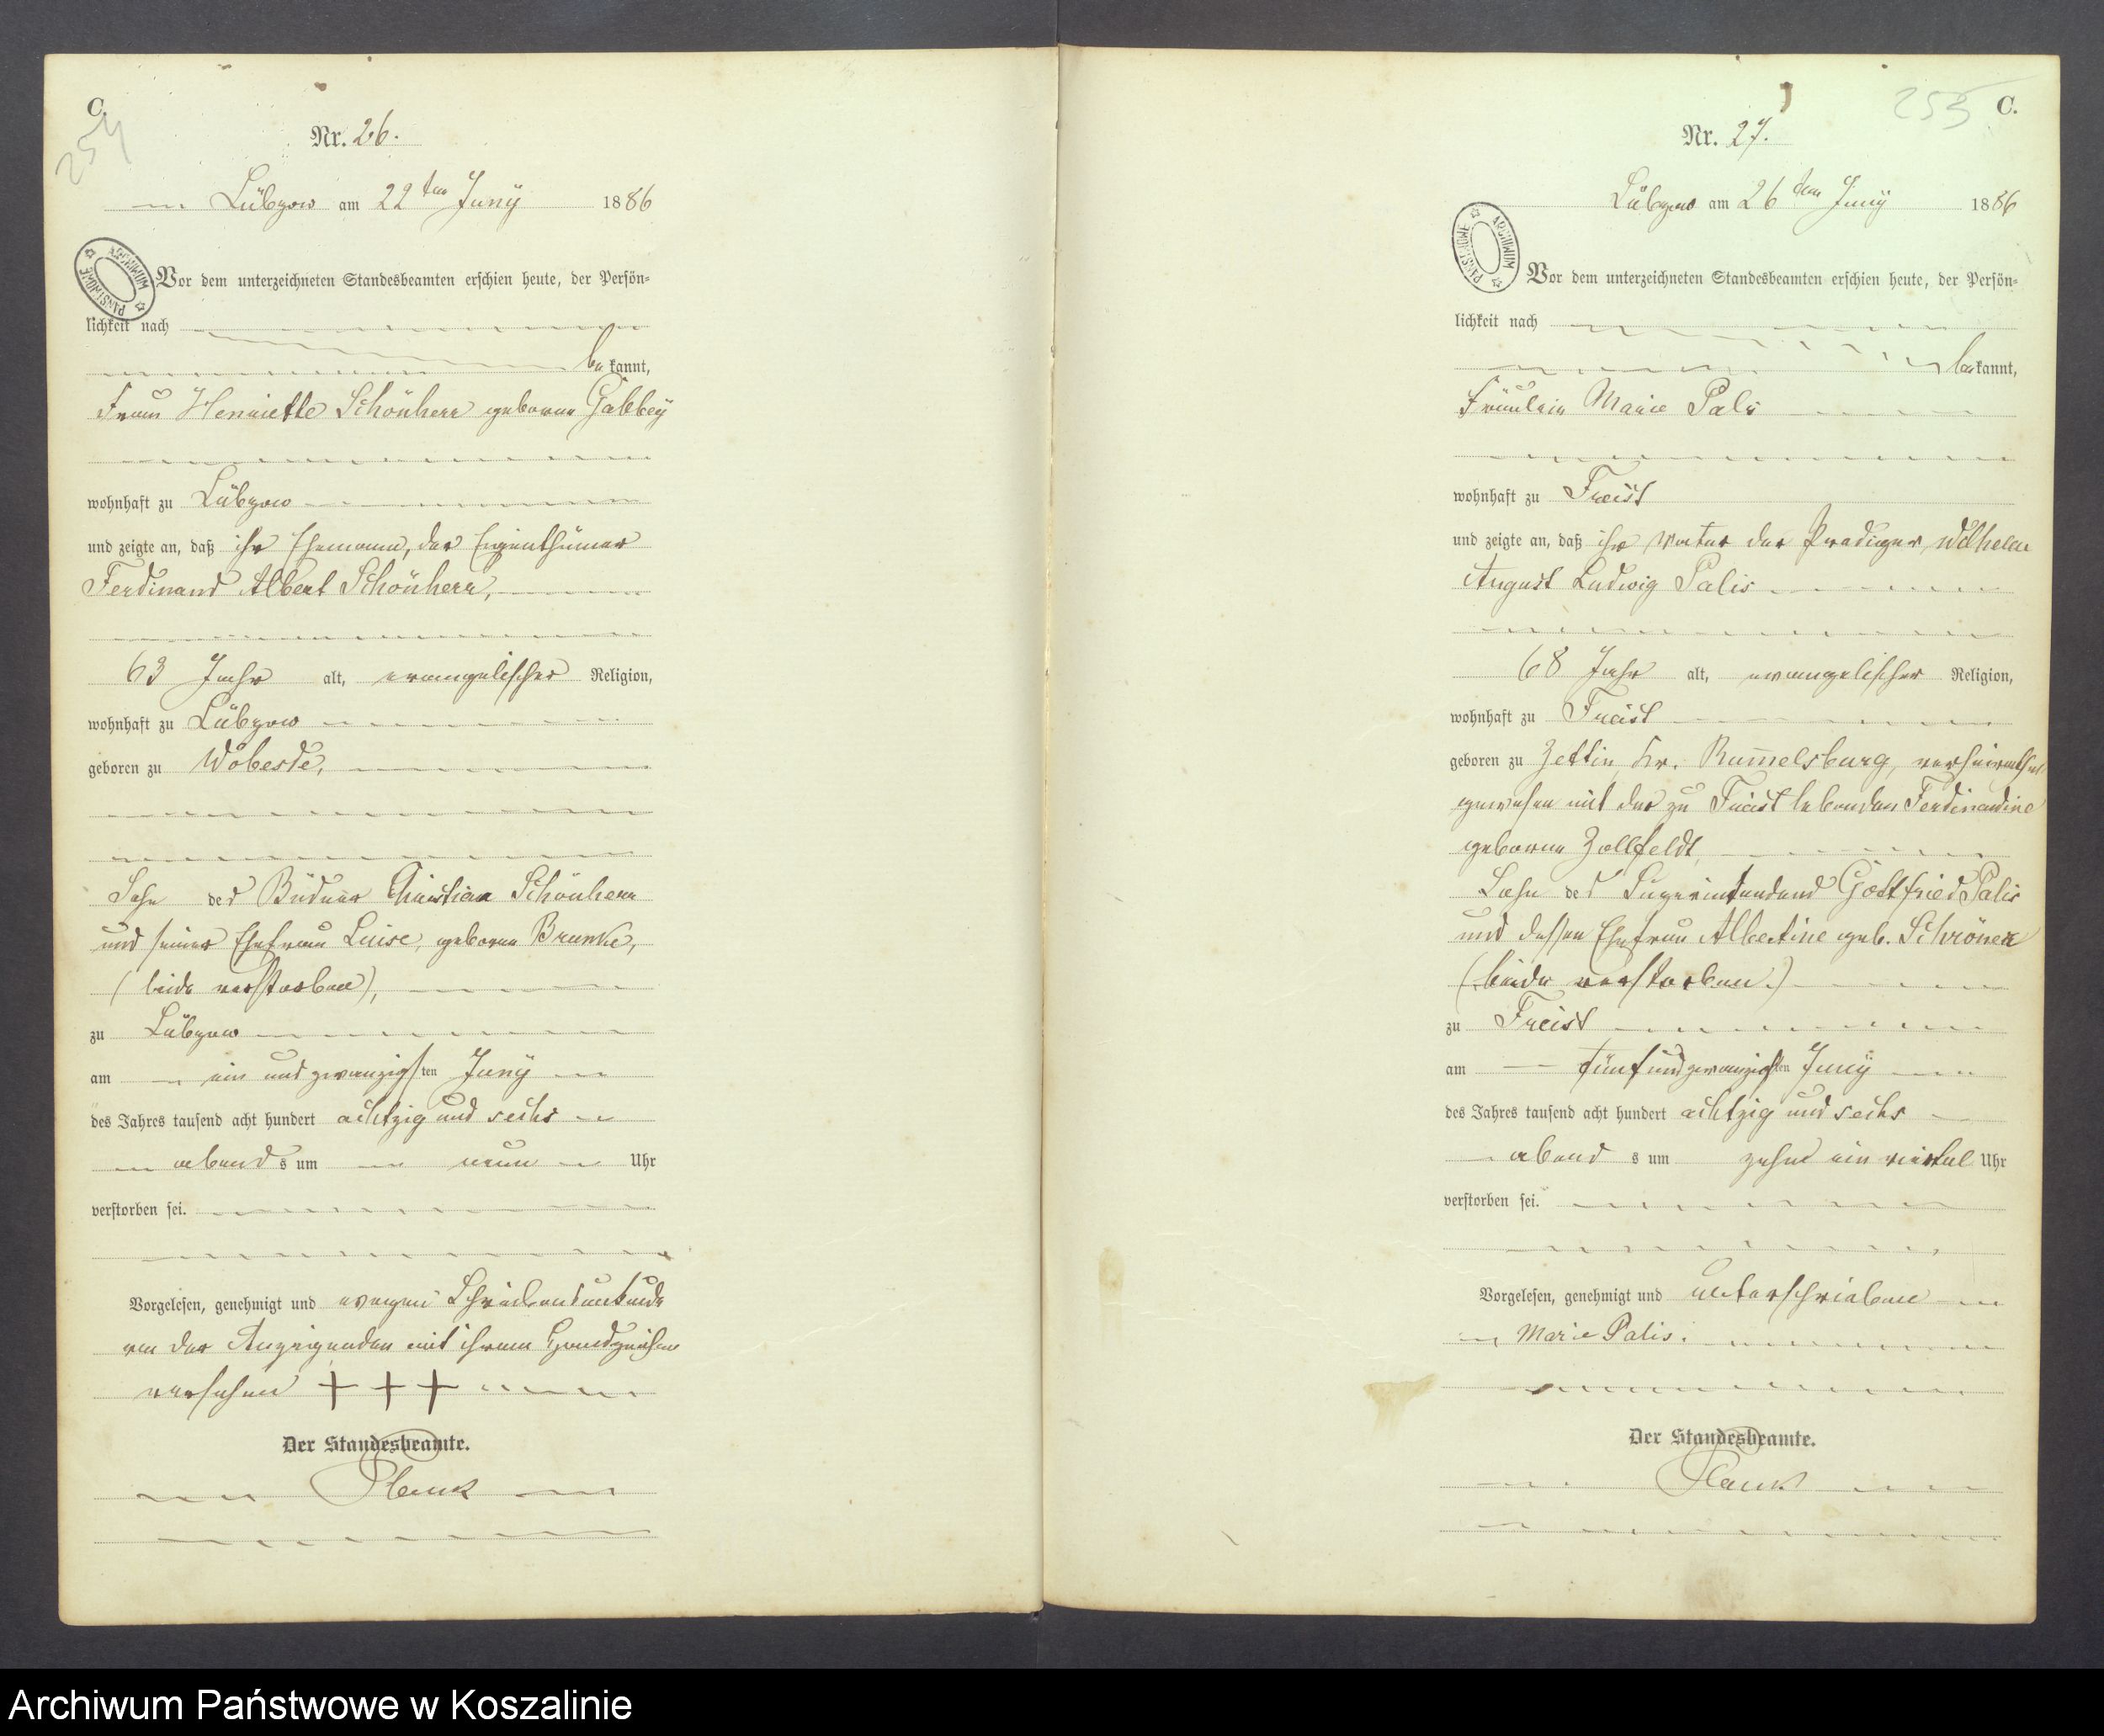 C.
254
Nr. 26.
Lübzow am 22ten Juny 1886
ARCHIWUM PAŃSTWOWE
Vor dem unterzeichneten Standesbeamten erschien heute, der Persön=
lichkeit nach
be kannt,
Frau Henriette Schönherr geborne Gabbey
wohnhaft zu Lübzow
und zeigte an, daß ihr Ehemann, der Eigenthümer
Ferdinand Albert Schönherr,
63 Jahr alt, evangelischer Religion,
wohnhaft zu Lübzow
geboren zu Wobesde,
Sohn des Büdner Christian Schönherr
und seiner Ehefrau Luise, geborne Brunke,
(beide verstorben),
zu Lübzow
am ein und zwanzigsten Juny
des Jahres tausend acht hundert achtzig und sechs
abend s um neun Uhr
verstorben sei.
Vorgelesen, genehmigt und wegen Schreibensunkunde
von der Anzeigenden mit ihrem Handzeichen
versehen + + +
Der Standesbeamte.
C.
255
Nr. 27.
Lübzow am 26ten Juny 1886
ARCHIWUM PAŃSTWOWE
Vor dem unterzeichneten Standesbeamten erschien heute, der Persön=
lichkeit nach
be kannt,
Fräulein Marie Palis
wohnhaft zu Freist
und zeigte an, daß ihr Vater der Prediger Wilhelm
August Ludwig Palis
68 Jahr alt, evangelischer Religion,
wohnhaft zu Freist
geboren zu Zettin Kr. Rummelsburg, verheirathet
gewesen mit der zu Freist lebenden Ferdinandine
geborne Zollfeldt,
Sohn des Superintendend Gottfried Palis
und dessen Ehefrau Albertine geb. Schröner
(beide verstorben.)
zu Freist
am fünf und zwanzigsten Juny
des Jahres tausend acht hundert achtzig und sechs
abend s um zehn ein viertel Uhr
verstorben sei.
Vorgelesen, genehmigt und unterschrieben
Marie Palis.
Der Standesbeamte.
Archiwum Państwowe w Koszalinie